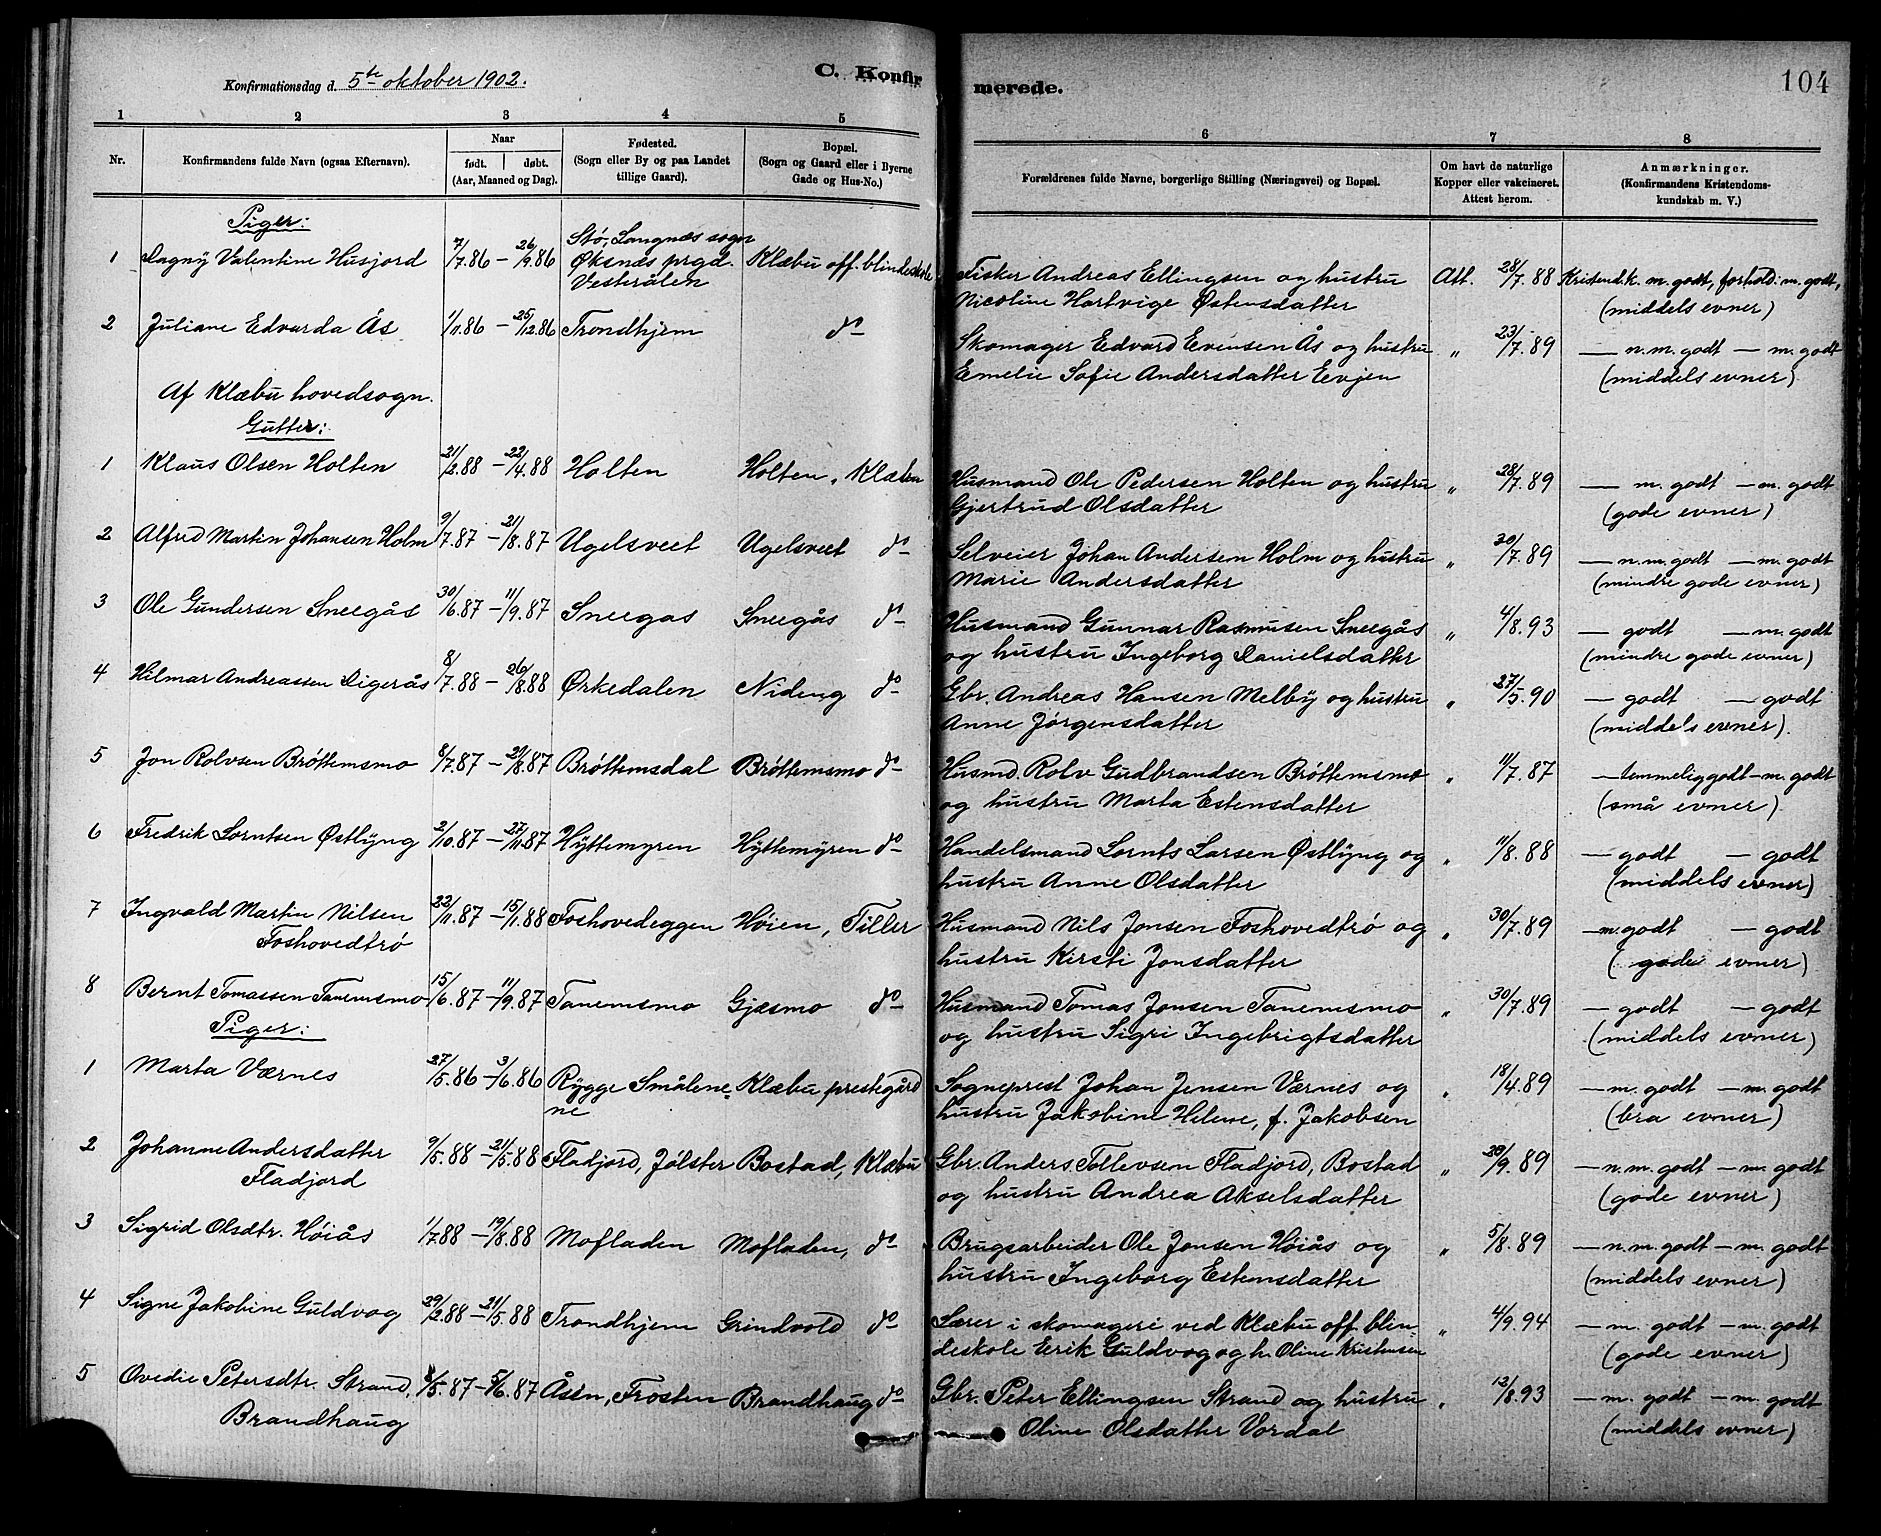 Konfirmationsdag d. 5te oktober 1902.
C. Konfirmerede.
104
1 2 3 4 5 6 7 8
Nr.
Konfirmandens fulde Navn (ogsaa Efternavn).
Naar
født. | døbt.
(Aar, Maaned og Dag).
Fødested.
(Sogn eller By og paa Landet
tillige Gaard).
Bopæl.
(Sogn og Gaard eller i Byerne
Gade og Hus-No.)
Forældrenes fulde Navne, borgerlige Stilling (Næringsvei) og Bopæl.
Om havt de naturlige
Kopper eller vakcineret.
Attest herom.
Anmærkninger.
(Konfirmandens Kristendoms-
kundskab m. V.)
Piger:
1 Dagny Valentine Husjord 7/7.86 — 26/9.86 Stø, Langnæs sogn Øksnæs prgd. Vesterålen Klæbu off. blindeskole Fisker Andreas Ellingsen og hustru Att. 28/7.88 Kristendk. m. godt, forhold: m. godt,
Nicoline Hartvige Østensdatter (middels evner)
2 Juliane Edvarda Ås 1/11.86 — 25/12.86 Trondhjem do Skomager Edvard Evensen Ås og hustru " 23/7.89 — n.m. godt — m. godt
Emelie Sofie Andersdatter Evjen (middels evner)
Af Klæbu hovedsogn.
Gutter:
1 Klaus Olsen Holten 21/2.88 — 22/4.88 Holten Holten, Klæbu Husmand Ole Pedersen Holten og hustru " 28/7.89 — m. godt — m. godt
Gjertrud Olsdatter (gode evner)
2 Alfred Martin Johansen Holm 9/7.87 — 21/8.87 Ugelsveet Ugelsveet do Selveier Johan Andersen Holm og hustru " 30/7.89 — n.m. godt — m. godt
Marie Andersdatter (mindre gode evner)
3 Ole Gundersen Sneegås 30/6.87 — 11/9.87 Sneegas Sneegås do Husmand Gunnar Rasmusen Sneegås " 4/8.93 — godt — m. godt
og hustru Ingeborg Danielsdatter (mindre gode evner)
4 Hilmar Andreassen Digerås 8/7.88 — 26/8.88 Ørkedalen Nideng do Gbr. Andreas Hansen Melby og hustru " 27/5.90 — godt — godt
Anne Jørgensdatter (middels evner).
5 Jon Rolvsen Brøttemsmo 8/7.87 — 21/8.87 Brøttemsdal Brøttemsmo do Husmd. Rolv Gudbrandsen Brøttemsmo " 11/7.87 — temmelig godt — m. godt
og hustru Marta Estensdatter (små evner)
6 Fredrik Lorntsen Østlyng 2/10.87 — 27/11.87 Hyttemyren Hyttemyren do Handelsmand Lornts Larsen Østlyng og " 11/8.88 — godt — godt
hustru Anne Olsdatter (middels evner)
7 Ingvald Martin Nilsen 22/11.87 — 15/1.88 Foshovedeggen Høien, Tiller Husmand Nils Jonsen Foshovedtrø og " 30/7.89 — m. godt — godt
Foshovedtrø hustru Kirsti Jonsdatter (gode evner)
8 Bernt Tomassen Tanemsmo 15/6.87 — 11/9.87 Tanemsmo Gjæsmo do Husmand Tomas Jonsen Tanemsmo " 30/7.89 — godt — godt
og hustru Sigri Ingebrigtsdatter (middels evner)
Piger:
1 Marta Værnes 27/5.86 — 3/6.86 Rygge Smålenene Klæbu prestegård Sogneprest Johan Jensen Værnes og " 18/4.89 — m. godt — m. godt
hustru Jakobine Helene, f. Jakobsen (bra evner)
2 Johanne Andersdatter 9/5.88 — 21/5.88 Fladjord, Jølster Bostad, Klæbu Gbr. Anders Tollevsen Fladjord, Bostad " 30/9.89 — n.m. godt — m. godt
Fladjord og hustru Andrea Akselsdatter (gode evner)
3 Sigrid Olsdtr. Høiås 1/7.88 — 19/8.88 Mofladen Mofladen, do Brugsarbeider Ole Jonsen Høiås og " 5/8.89 — n.m. godt — m. godt
hustru Ingeborg Estensdatter (middels evner)
4 Signe Jakobine Guldvog 29/2.88 — 21/5.88 Trondhjem Grindvold do Lærer i skomageri ved Klæbu off. blin- " 4/9.94 — m. godt — m. godt
deskole Erik Guldvog og h. Oline Kristensen (gode evner)
5 Ovedie Petersdtr. Strand, 8/5.87 — 5/6.87 Åsen, Frosten Brandhaug do Gbr. Peter Ellingsen Strand og hustru " 12/8.93 — m. godt — m. godt
Brandhaug Oline Olsdatter Vordal (middels evner)